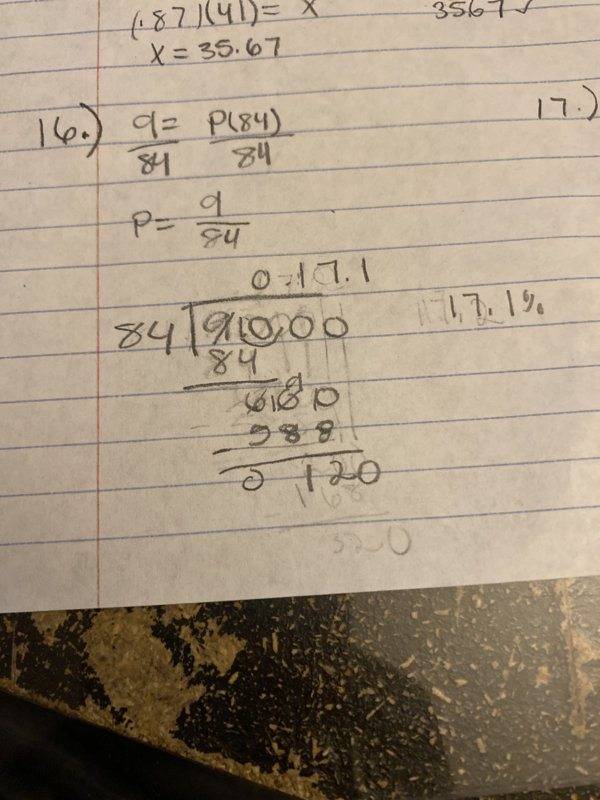 (.87)(41)= x
3567✓
x = 35.67
16.) 9 = P(84)
84 84
17.)
P = 9
84
0.17.1
84 910,00 17.1%
84
6,60
588
0 120
168
320